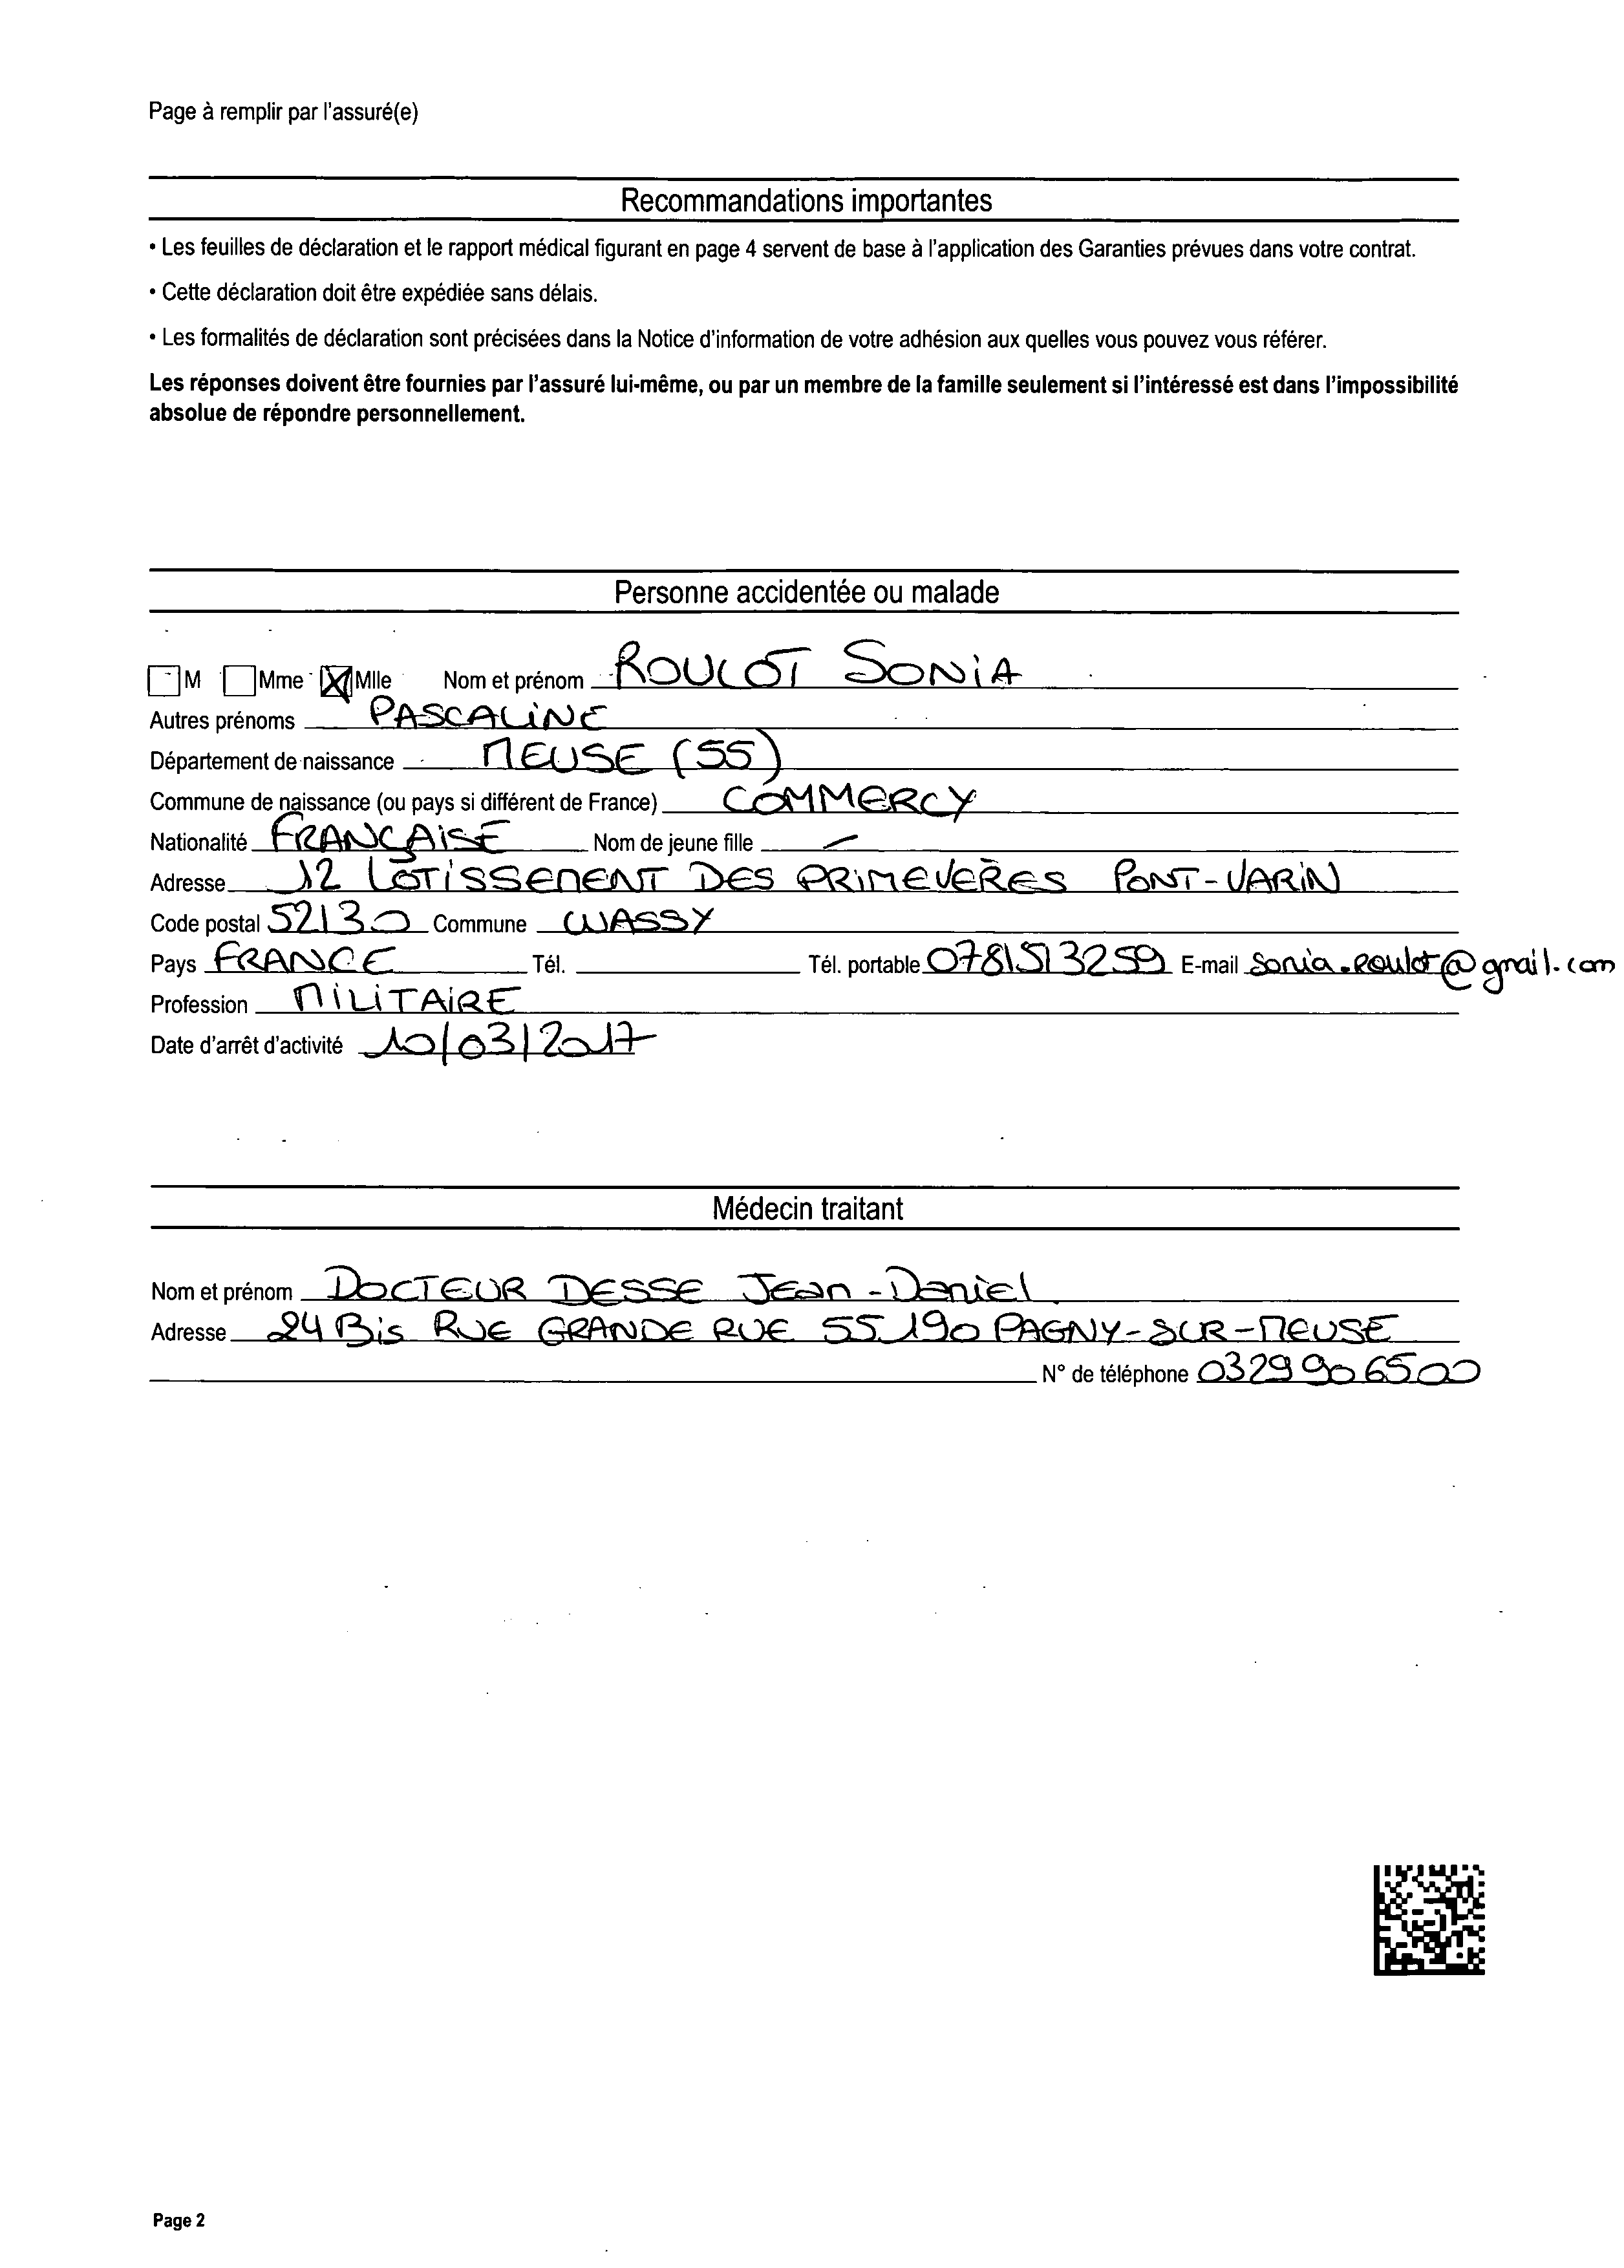 Page à remplir par l'assuré(e)
Recommandations importantes
• Les feuilles de déclaration et le rapport médical figurant en page 4 servent de base à l'application des Garanties prévues dans votre contrat.
• Cette déclaration doit être expédiée sans délais.
• Les formalités de déclaration sont précisées dans la Notice d'information de votre adhésion aux quelles vous pouvez vous référer.
Les réponses doivent être fournies par l'assuré lui-même, ou par un membre de la famille seulement si l'intéressé est dans l'impossibilité
absolue de répondre personnellement.
Personne accidentée ou malade
M Mme Mlle Nom et prénom ROULOT SONIA
Autres prénoms PASCALINE
Département de naissance MEUSE (55)
Commune de naissance (ou pays si différent de France) COMMERCY
Nationalité FRANÇAISE Nom de jeune fille —
Adresse 12 LOTISSEMENT DES PRIMEVÈRES PONT-VARIN
Code postal 52130 Commune WASSY
Pays FRANCE Tél. Tél. portable 0781513259 E-mail sonia.roulot@gmail.com
Profession MILITAIRE
Date d'arrêt d'activité 10/03/2017
Médecin traitant
Nom et prénom DOCTEUR DESSE Jean-Daniel
Adresse 24 Bis RUE GRANDE RUE 55190 PAGNY-SUR-MEUSE
N° de téléphone 0329906500
Page 2